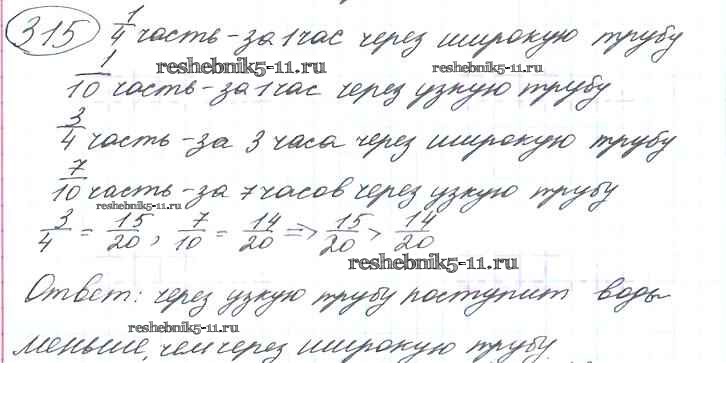 315 1/4 часть - за 1 час через широкую трубу
reshebnik5-11.ru reshebnik5-11.ru
1/10 часть - за 1 час через узкую трубу
3/4 часть - за 3 часа через широкую трубу
7/10 часть - за 7 часов через узкую трубу
reshebnik5-11.ru
3/4 = 15/20, 7/10 = 14/20 => 15/20 > 14/20
reshebnik5-11.ru
Ответ: через узкую трубу поступит воды
reshebnik5-11.ru
меньше, чем через широкую трубу